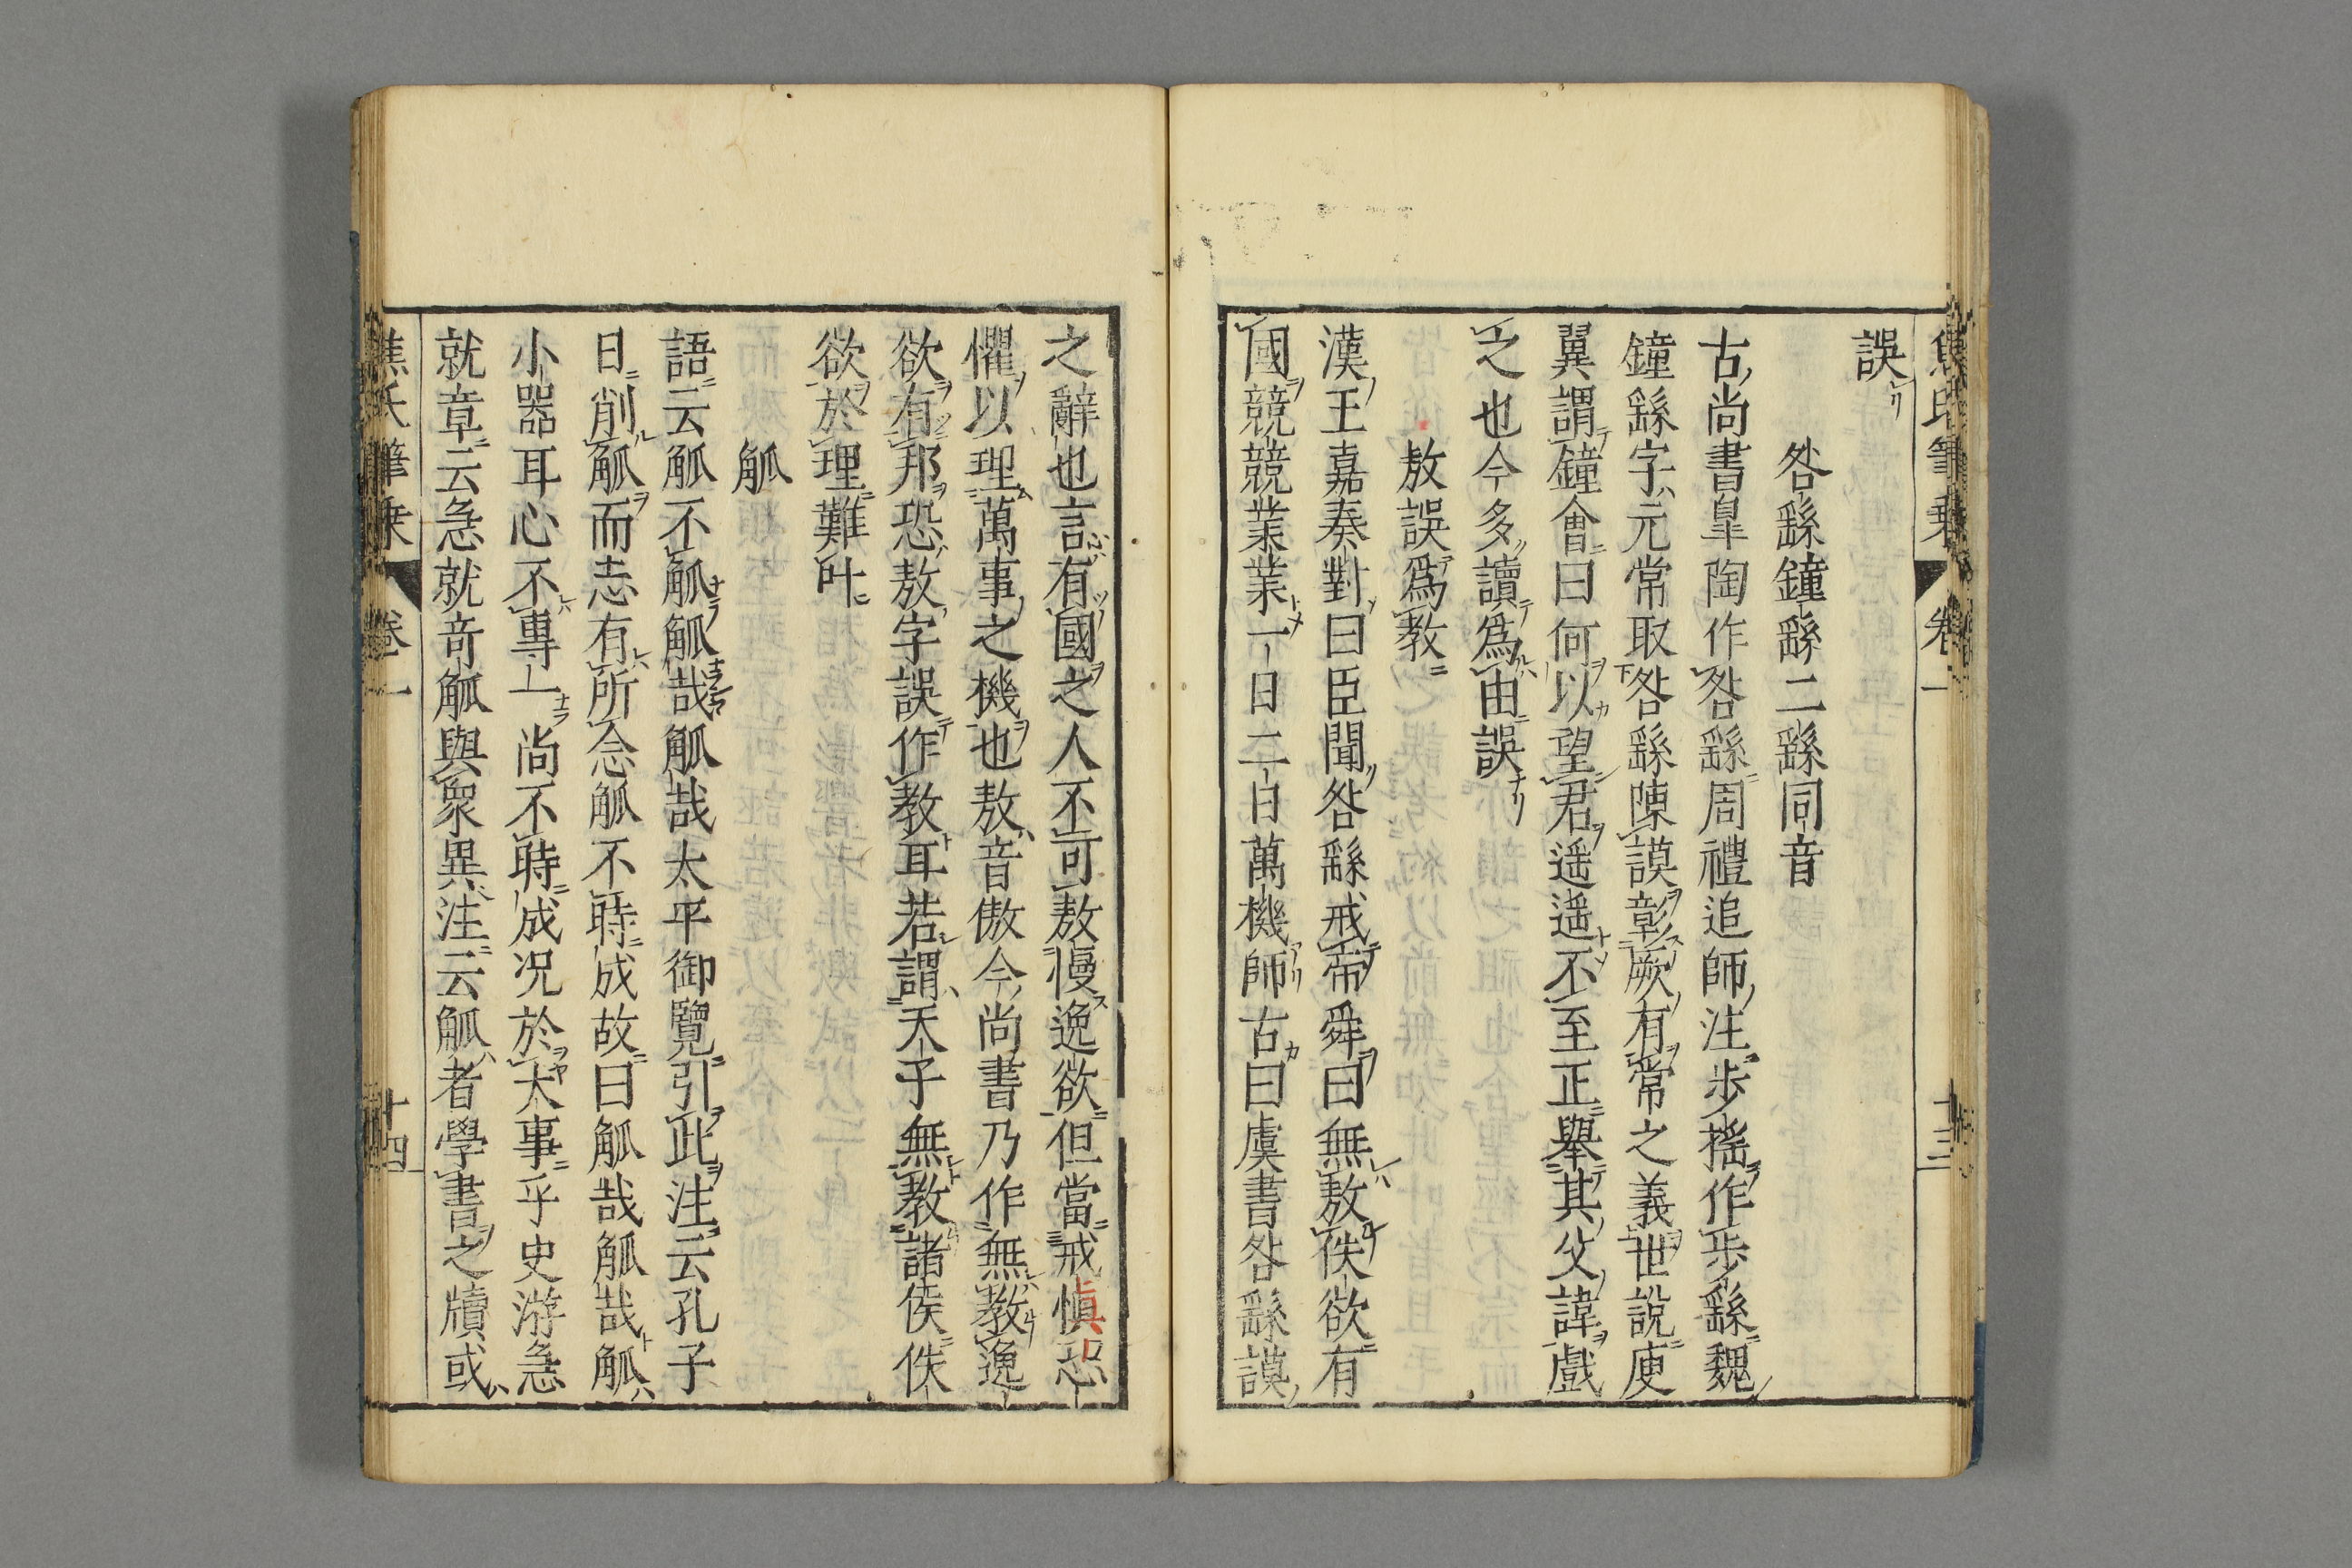 焦氏筆乗 卷一 十三
誤
咎繇鐘繇二繇同音
古尚書皐陶作咎繇周禮追師注步搖作步繇魏
鐘繇字元常取咎繇陳謨彰厥有常之義世說庾
翼謂鐘會曰何以望君遥遥不至正舉其父諱戲
之也今多讀爲由誤
敖誤爲教
漢王嘉奏對曰臣聞咎繇戒帝舜曰無敖佚欲有
國競競業業一日二日萬機師古曰虞書咎繇謨
之辭也言有國之人不可敖慢逸欲但當戒慎恐
懼以理萬事之機也敖音傲今尚書乃作無教逸
欲有邦恐敖字誤作教耳若謂天子無教諸侯佚
欲於理難叶
觚
語云觚不觚觚哉觚哉太平御覽引此注云孔子
曰削觚而志有所念觚不時成故曰觚哉觚哉觚
小器耳心不專一尚不時成况於大事乎史游急
就章云急就奇觚與衆異注云觚者學書之牘或
焦氏筆乗 卷一 十四